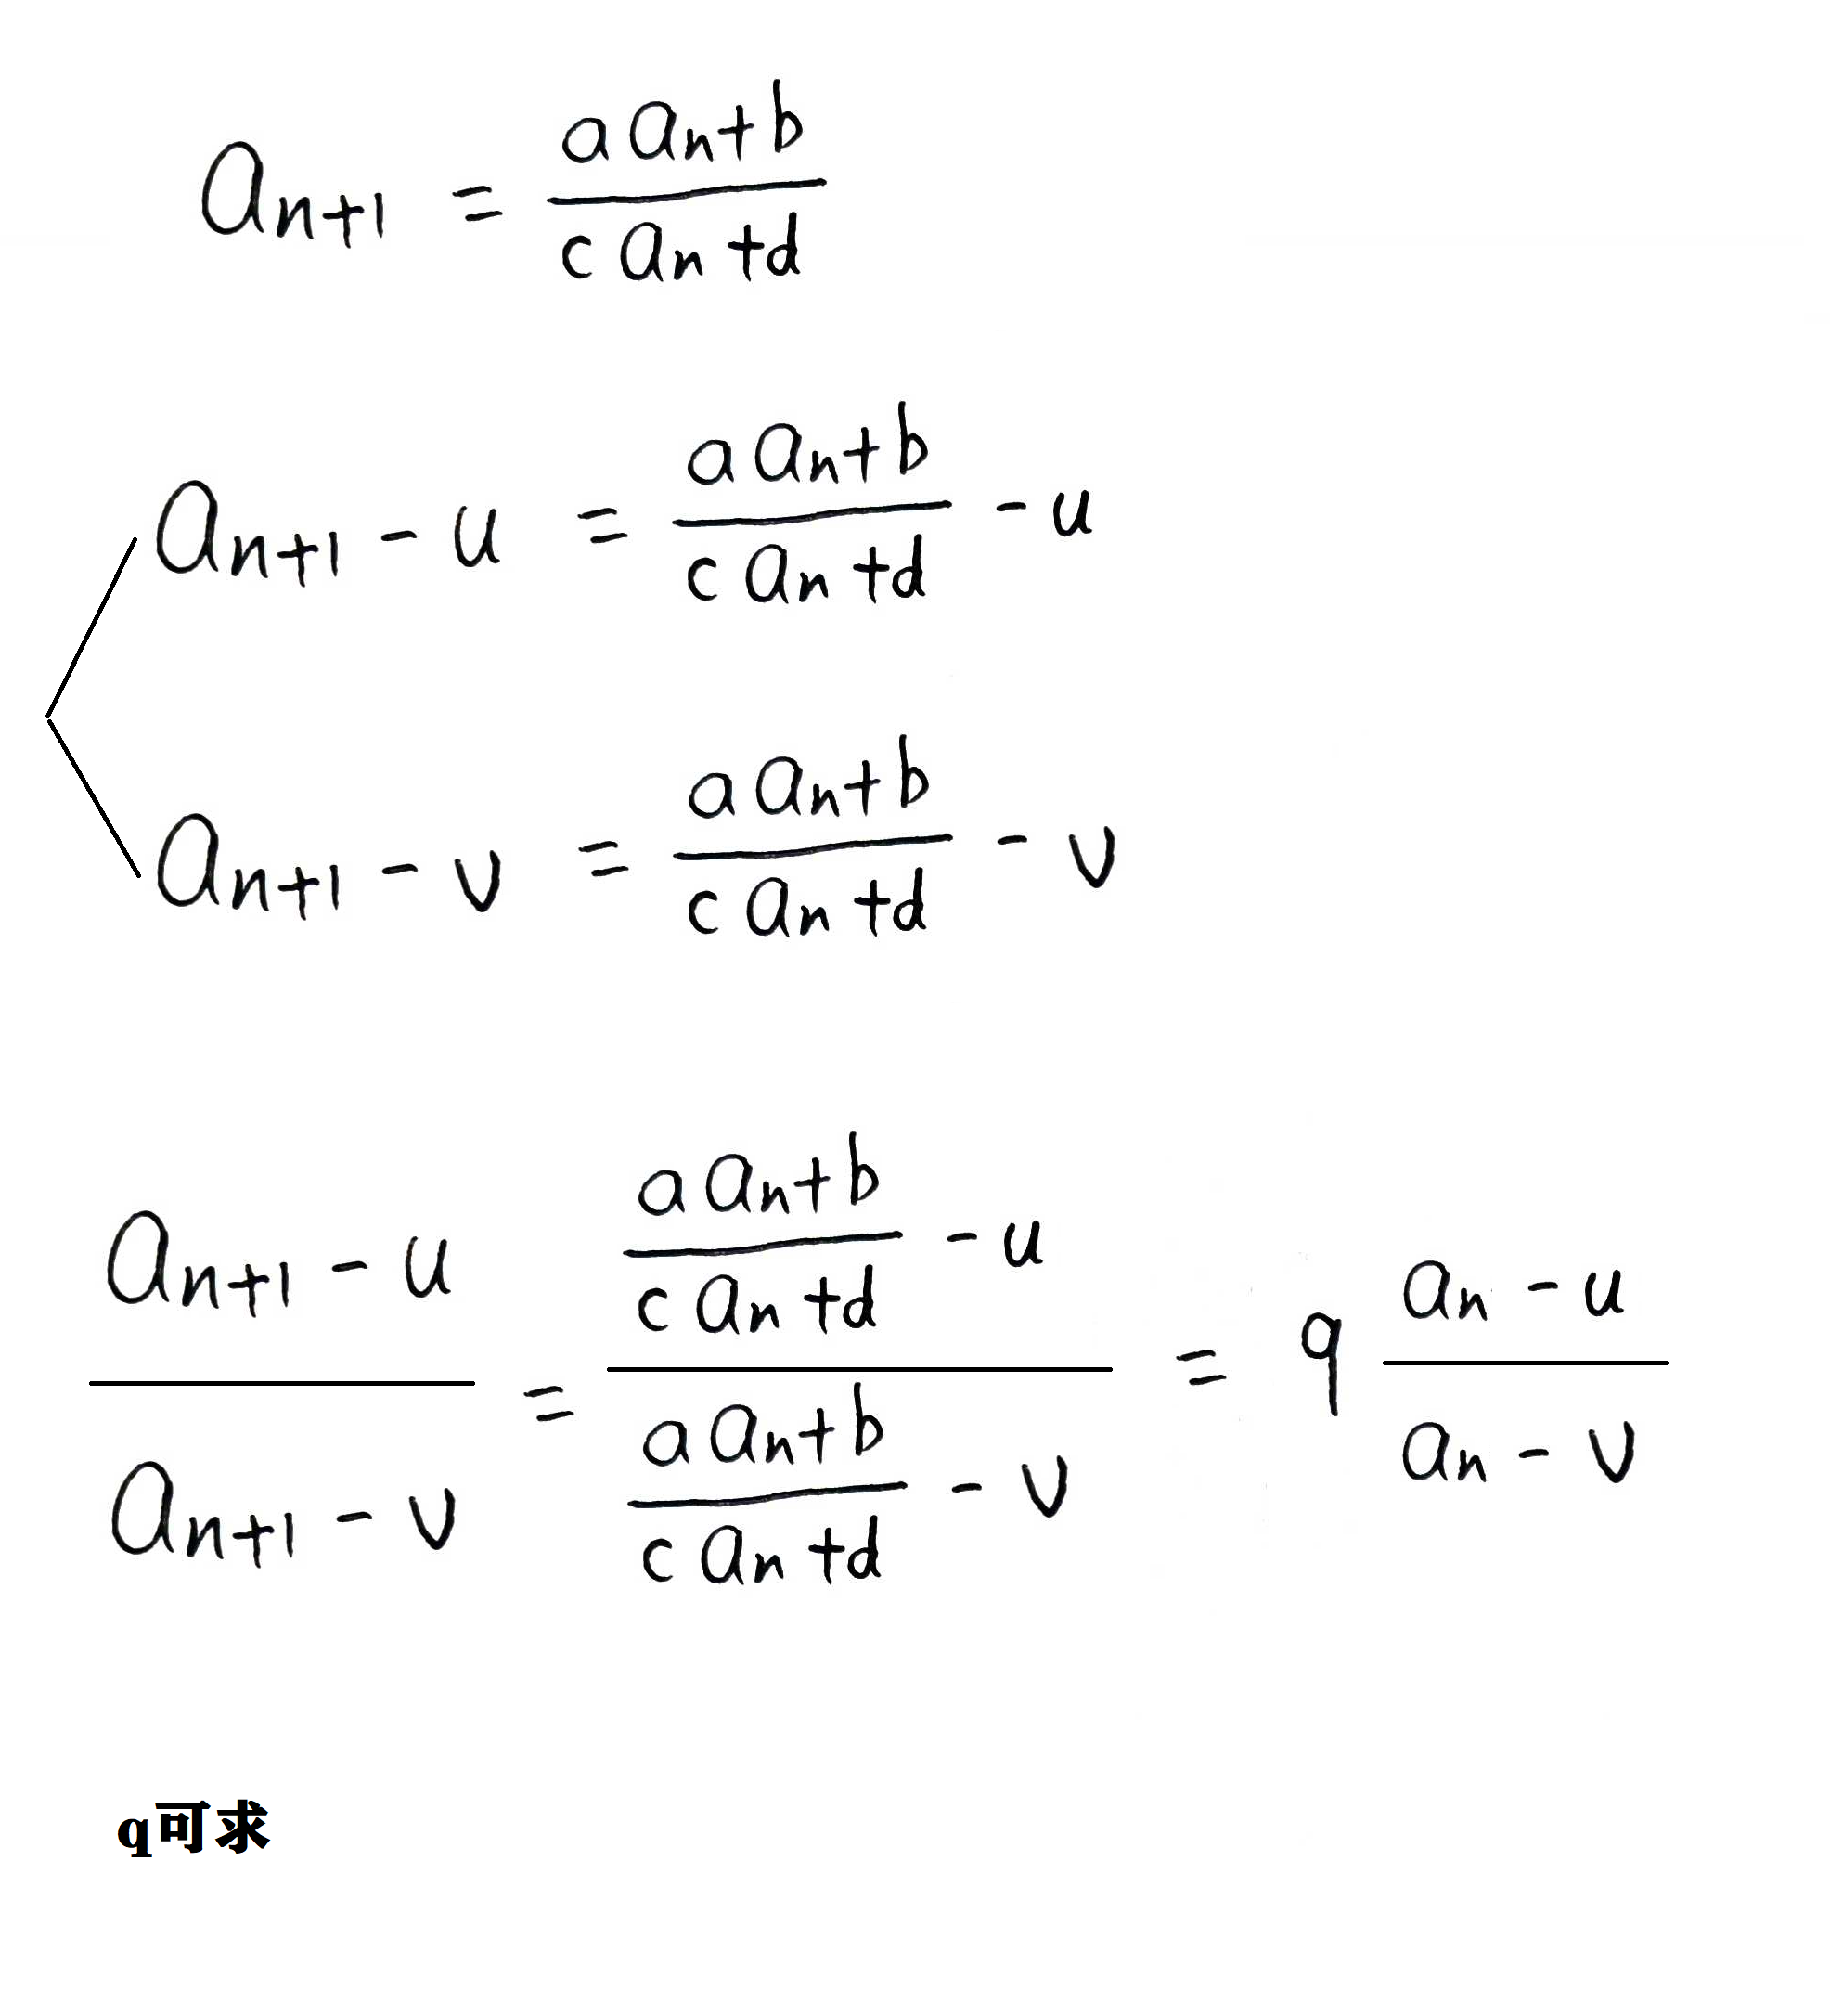 a_{n+1} = \frac{a a_n + b}{c a_n + d}
a_{n+1} - u = \frac{a a_n + b}{c a_n + d} - u
a_{n+1} - v = \frac{a a_n + b}{c a_n + d} - v
\frac{a_{n+1} - u}{a_{n+1} - v} = \frac{\frac{a a_n + b}{c a_n + d} - u}{\frac{a a_n + b}{c a_n + d} - v} = q \frac{a_n - u}{a_n - v}
q可求